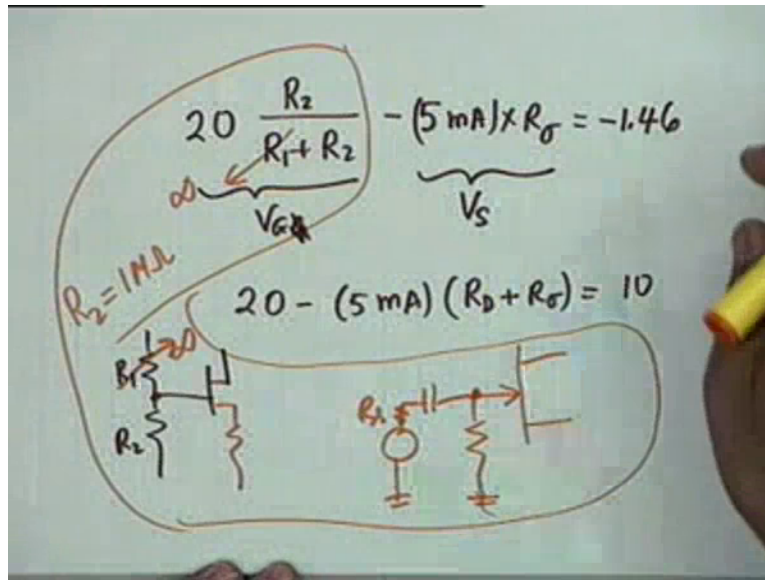 20 R₂ / (R₁ + R₂) - (5 mA) × Rσ = -1.46
∞
VG VS
R₂ = 1MΩ
20 - (5 mA) (R_D + Rσ) = 10
∞
R₁
R₂